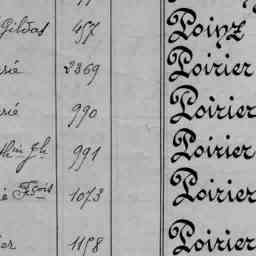 Gildas 457 Poinz
rié 2369 Poirier
rié 990 Poirier
thin Jh 991 Poirier
ié Fçois 1073 Poirier
ier 1158 Poirier